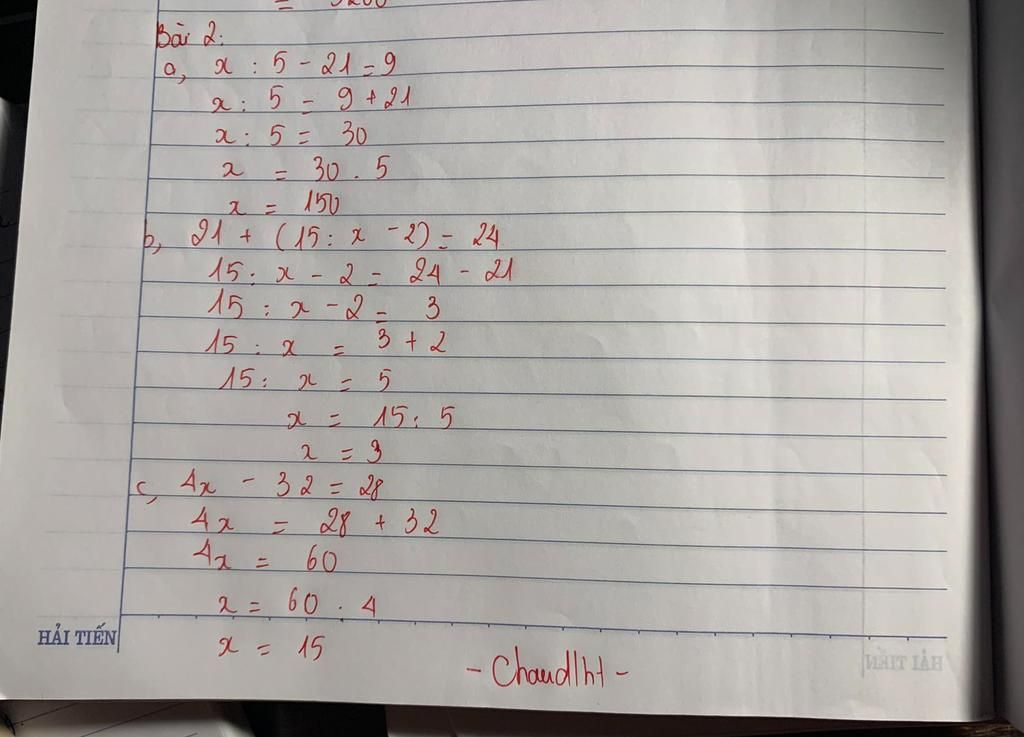 = 3200
Bài 2:
a, x : 5 - 21 = 9
x : 5 = 9 + 21
x : 5 = 30
x = 30 . 5
x = 150
b, 21 + (15 : x - 2) = 24
15 : x - 2 = 24 - 21
15 : x - 2 = 3
15 : x = 3 + 2
15 : x = 5
x = 15 : 5
x = 3
c, 4x - 32 = 28
4x = 28 + 32
4x = 60
x = 60 . 4
HẢI TIẾN
x = 15
- Chaudlht -
HẢI TIẾN